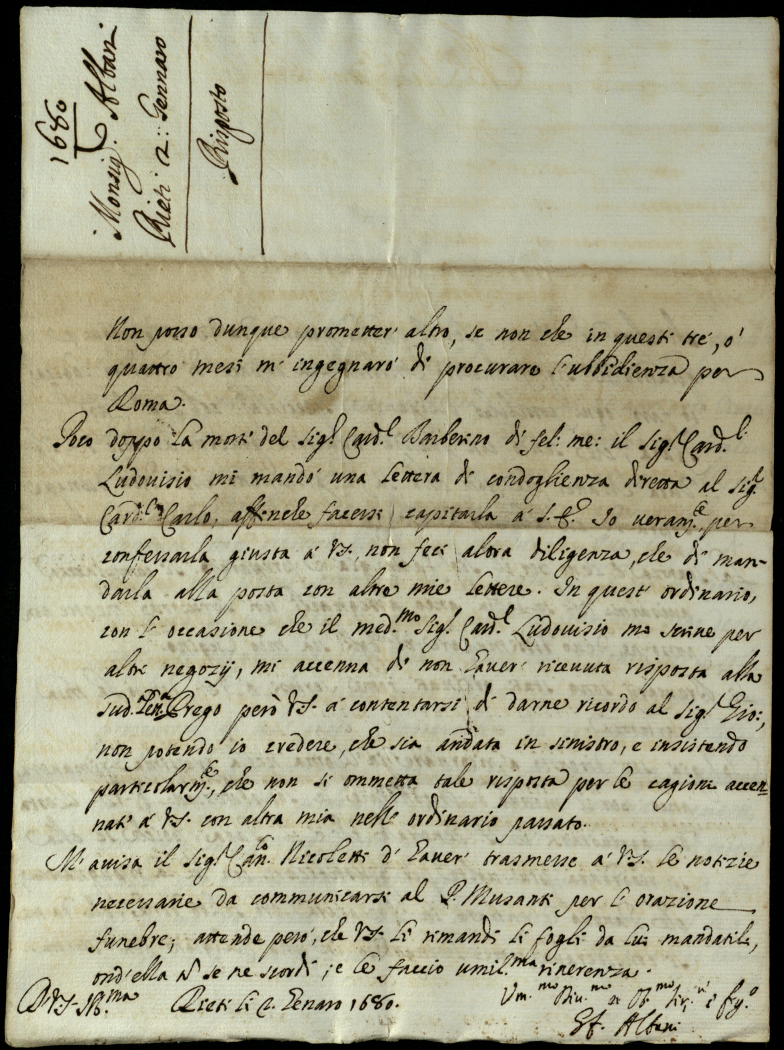 1680
Monsig.r Albani
Rieti 2: Gennaro
Risposto
Non posso dunque prometter' altro, se non che in questi trè, ò
quattro mesi m' ingegnarò di procurare l'ubbidienza per
Roma.
Poco doppo la morte del Sig.r Card.l Barberino di fel: me: il Sig.r Card.l
Ludovisio mi mandò una lettera di condoglienza diretta al Sig.r
Card.l Carlo, affinche facessi capitarla à S. E. Io veram.te, per
confessarla giusta à VS. non feci alora diligenza, che di man-
darla alla posta con altre mie lettere. In quest' ordinario,
con l' occasione che il med.mo Sig.r Card.l Ludovisio mi scrive per
altri negozij, mi accenna di non haver' ricevuta risposta alla
sud.a Prego però VS. à contentarsi di darne ricordo al Sig.r Gio:,
non potendo io credere, che sia andata in sinistro, e insistendo
particolarm.te, che non si ommetta tale risposta per le cagioni accen-
nate à VS. con altra mia nell' ordinario passato.
M' avisa il Sig.r Can.co Nicoletti d' haver' trasmesse à VS. le notizie
necessarie da communicarsi al P. Musanti per l' orazione
funebre; attende però, che VS. li rimandi li fogli da lui mandatile,
ond' ella n̄ se ne scordi; e le faccio umil.ma riverenza.
D. VS. Ill.ma Rieti li 2. Genaro 1680.
Um.mo Div.mo et Ob.mo Ser.re
Albani